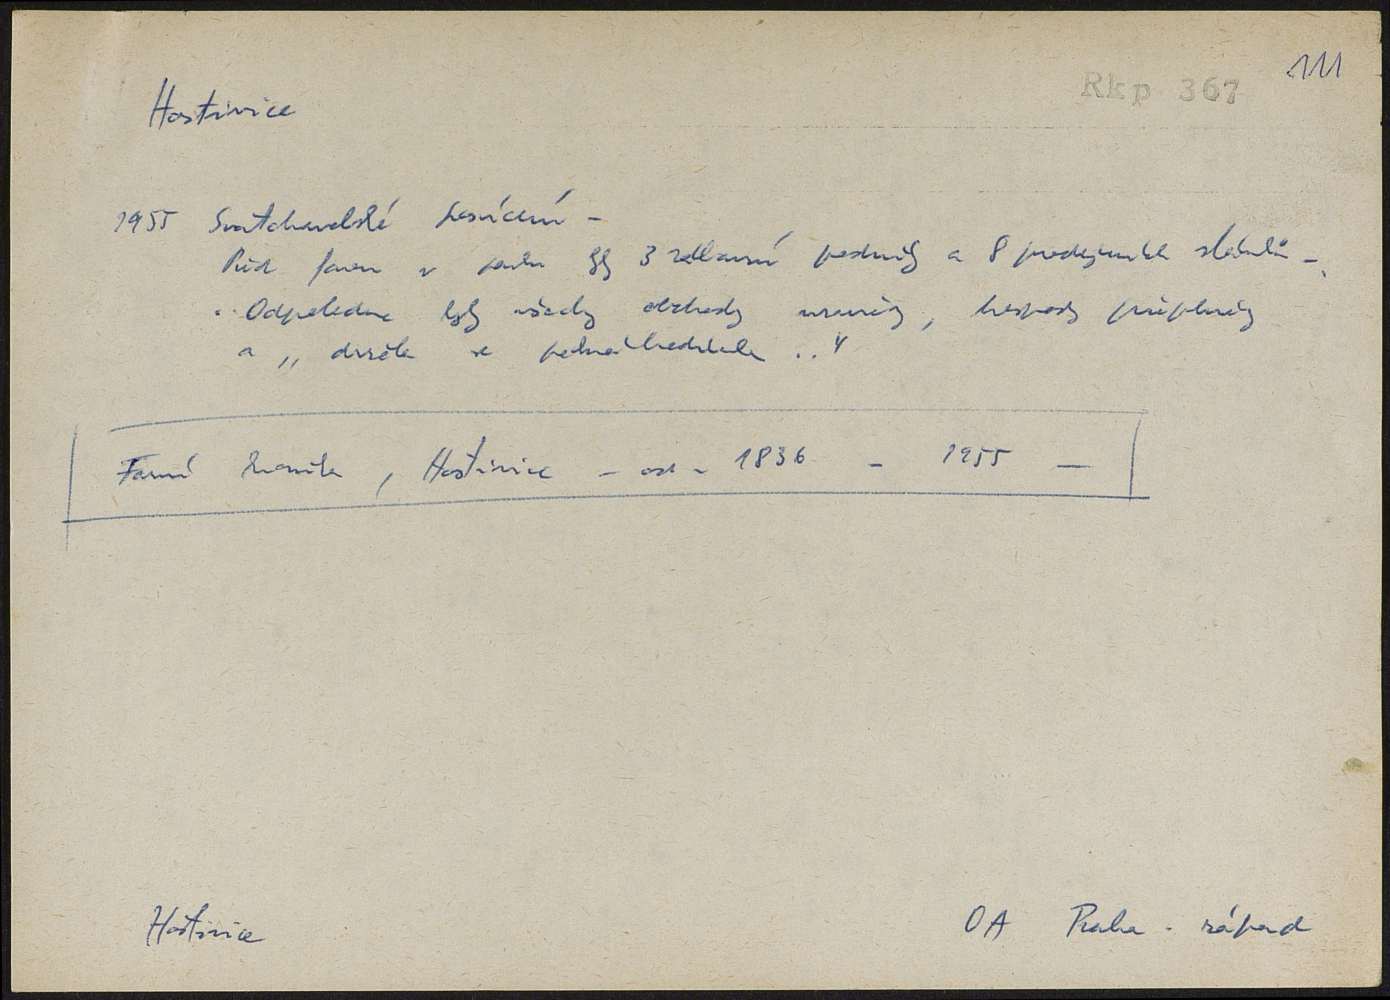 Rkp 367
111
Hostivice
1955 Svatohavelské posvícení -
Před farou v parku byly 3 zábavní podniky a 8 prodejních stánků -
Odpoledne byly všechny obchody uzavřeny, hospody přeplněny
a „ se ..."
Farní kronika, Hostivice - od - 1836 - 1955 —
Hostivice
OA Praha - západ